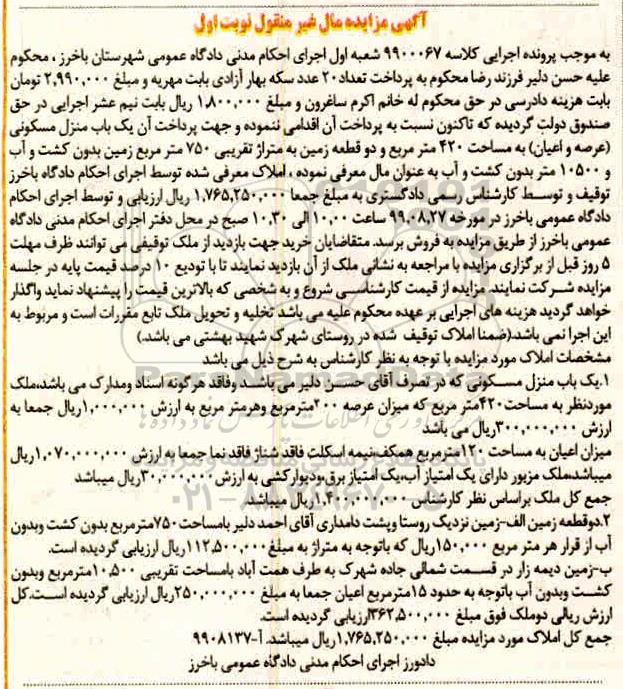 آگهی مزایده مال غیر منقول نوبت اول
به موجب پرونده اجرایی کلاسه ۹۹۰۰۰۶۷ شعبه اول اجرای احکام مدنی دادگاه عمومی شهرستان باخرز ، محکوم
علیه حسن دلیر فرزند رضا محکوم به پرداخت تعداد ۲۰ عدد سکه بهار آزادی بابت مهریه و مبلغ ۲,۹۹۰,۰۰۰ تومان
بابت هزینه دادرسی در حق محکوم له خانم اکرم ساغرون و مبلغ ۱,۸۰۰,۰۰۰ ریال بابت نیم عشر اجرایی در حق
صندوق دولت گردیده که تاکنون نسبت به پرداخت آن اقدامی ننموده و جهت پرداخت آن یک باب منزل مسکونی
(عرصه و اعیان) به مساحت ۴۲۰ متر مربع و دو قطعه زمین به متراژ تقریبی ۷۵۰ متر مربع زمین بدون کشت و آب
و ۱۰۵۰۰ متر بدون کشت و آب به عنوان مال معرفی نموده ، املاک معرفی شده توسط اجرای احکام دادگاه باخرز
توقیف و توسط کارشناس رسمی دادگستری به مبلغ جمعا ۱,۷۶۵,۲۵۰,۰۰۰ ریال ارزیابی و توسط اجرای احکام
دادگاه عمومی باخرز در مورخه ۹۹.۰۸.۲۷ ساعت ۱۰.۰۰ الی ۱۰.۳۰ صبح در محل دفتر اجرای احکام مدنی دادگاه
عمومی باخرز از طریق مزایده به فروش برسد. متقاضایان خرید جهت بازدید از ملک توقیفی می توانند ظرف مهلت
۵ روز قبل از برگزاری مزایده با مراجعه به نشانی ملک از آن بازدید نمایند تا با تودیع ۱۰ درصد قیمت پایه در جلسه
مزایده شرکت نمایند. مزایده از قیمت کارشناسی شروع و به شخصی که بالاترین قیمت را پیشنهاد نماید واگذار
خواهد گردید هزینه های اجرایی بر عهده محکوم علیه می باشد تخلیه و تحویل ملک تابع مقررات است و مربوط به
این اجرا نمی باشد.(ضمنا املاک توقیف شده در روستای شهرک شهید بهشتی می باشد.)
مشخصات املاک مورد مزایده با توجه به نظر کارشناس به شرح ذیل می باشد
۱.یک باب منزل مسکونی که در تصرف آقای حسن دلیر می باشد وفاقد هرگونه اسناد ومدارک می باشد،ملک
موردنظر به مساحت۴۲۰متر مربع که میزان عرصه ۳۰۰مترمربع وهرمتر مربع به ارزش ۱,۰۰۰,۰۰۰ریال جمعا به
ارزش ۳۰۰,۰۰۰,۰۰۰ریال می باشد
میزان اعیان به مساحت ۱۲۰مترمربع همکف،نیمه اسکلت فاقد شناژ فاقد نما جمعا به ارزش ۱,۰۷۰,۰۰۰,۰۰۰ریال
میباشد،ملک مزبور دارای یک امتیاز آب،یک امتیاز برق،ودیوارکشی به ارزش ۳۰,۰۰۰,۰۰۰ریال میباشد
جمع کل ملک براساس نظر کارشناس ۱,۴۰۰,۰۰۰,۰۰۰ریال میباشد
۲.دوقطعه زمین الف-زمین نزدیک روستا وپشت دامداری آقای احمد دلیر بامساحت ۷۵۰مترمربع بدون کشت وبدون
آب از قرار هر متر مربع ۱۵۰,۰۰۰ریال که باتوجه به متراژ به مبلغ ۱۱۲,۵۰۰,۰۰۰ریال ارزیابی گردیده است.
ب-زمین دیمه زار در قسمت شمالی جاده شهرک به طرف همت آباد بامساحت تقریبی ۱۰,۵۰۰مترمربع وبدون
کشت وبدون آب باتوجه به حدود ۱۵مترمربع اعیان جمعا به مبلغ ۲۵۰,۰۰۰,۰۰۰ریال ارزیابی گردیده است.کل
ارزش ریالی دوملک فوق مبلغ ۳۶۲,۵۰۰,۰۰۰ریال ارزیابی گردیده است.
جمع کل املاک مورد مزایده مبلغ ۱,۷۶۵,۲۵۰,۰۰۰ریال میباشد. آ-۹۹۰۸۱۳۷
دادورز اجرای احکام مدنی دادگاه عمومی باخرز